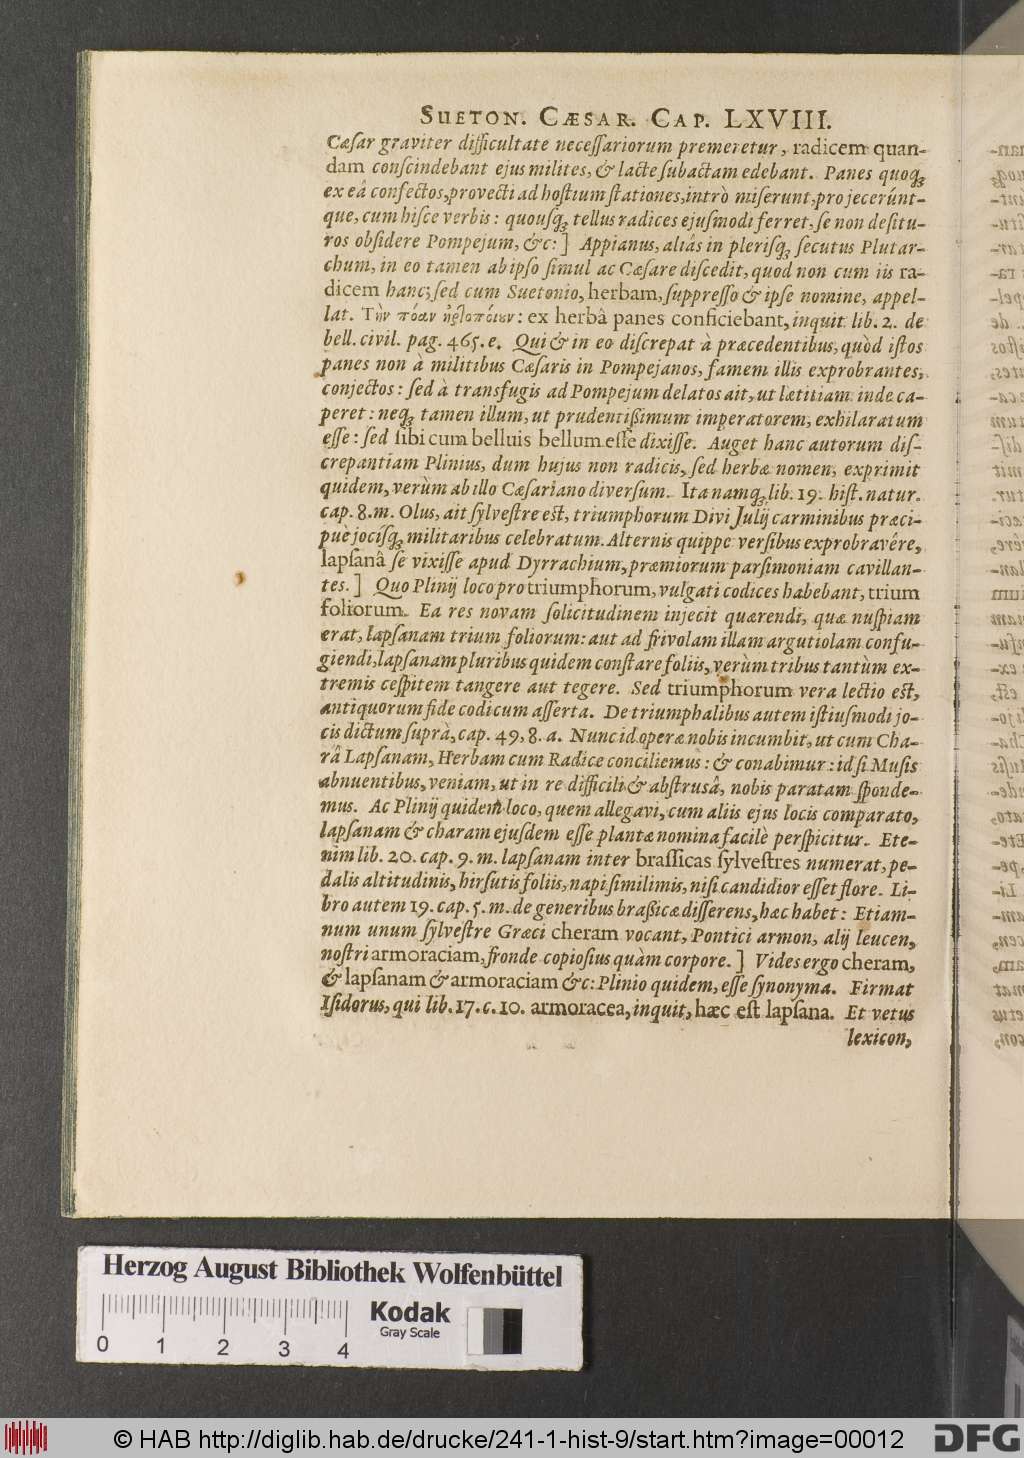 SUETON. CÆSAR. CAP. LXVIII.
Cæſar graviter difficultate neceſſariorum premeretur, radicem quan-
dam conſcindebant ejus milites, & lacte ſubactam edebant. Panes quoq́;
ex eâ confectos, provecti ad hoſtium ſtationes, intrò miſerunt, projecerúnt-
que, cum hiſce verbis: quouſq́; tellus radices ejuſmodi ferret, ſe non deſitu-
ros obſidere Pompejum, &c:] Appianus, aliâs in pleriſq́; ſecutus Plutar-
chum, in eo tamen ab ipſo ſimul ac Cæſare diſcedit, quod non cum iis ra-
dicem hanc; ſed cum Suetonio, herbam, ſuppreſſo & ipſe nomine, appel-
lat. Τὴν πόαν : ex herbâ panes conficiebant, inquit lib. 2. de
bell. civil. pag. 465. e. Qui & in eo diſcrepat à præcedentibus, quòd iſtos
panes non à militibus Cæſaris in Pompejanos, famem illis exprobrantes,
conjectos: ſed à transfugis ad Pompejum delatos ait, ut lætitiam inde ca-
peret: neq́; tamen illum, ut prudentißimum imperatorem, exhilaratum
eſſe: ſed ſibi cum belluis bellum eſſe dixiſſe. Auget hanc autorum diſ-
crepantiam Plinius, dum hujus non radicis, ſed herbæ nomen, exprimit
quidem, verùm ab illo Cæſariano diverſum. Ita namq́; lib. 19. hiſt. natur.
cap. 8. m. Olus, ait ſylveſtre eſt, triumphorum Divi Julij carminibus præci-
puè jocíſq́; militaribus celebratum. Alternis quippe verſibus exprobravêre,
lapſanâ ſe vixiſſe apud Dyrrachium, præmiorum parſimoniam cavillan-
tes.] Quo Plinij loco pro triumphorum, vulgati codices habebant, trium
foliorum. Ea res novam ſolicitudinem injecit quærendi, quæ nuſpiam
erat, lapſanam trium foliorum: aut ad frivolam illam argutiolam confu-
giendi, lapſanam pluribus quidem conſtare foliis, verùm tribus tantùm ex-
tremis ceſpitem tangere aut tegere. Sed triumphorum vera lectio eſt,
antiquorum fide codicum aſſerta. De triumphalibus autem iſtiuſmodi jo-
cis dictum ſuprà, cap. 49, 8. a. Nunc id operæ nobis incumbit, ut cum Cha-
râ Lapſanam, Herbam cum Radice conciliemus: & conabimur: id ſi Muſis
abnuentibus, veniam, ut in re difficili & abſtrusâ, nobis paratam ſponde-
mus. Ac Plinij quidem loco, quem allegavi, cum aliis ejus locis comparato,
lapſanam & charam ejuſdem eſſe plantæ nomina facilè perſpicitur. Ete-
nim lib. 20. cap. 9. m. lapſanam inter braſſicas ſylveſtres numerat, pe-
dalis altitudinis, hirſutis foliis, napi ſimilimis, niſi candidior eſſet flore. Li-
bro autem 19. cap. 5. m. de generibus braßicæ diſſerens, hæc habet: Etiam-
num unum ſylveſtre Græci cheram vocant, Pontici armon, alij leucen,
noſtri armoraciam, fronde copioſius quàm corpore.] Vides ergo cheram,
& lapſanam & armoraciam &c: Plinio quidem, eſſe ſynonyma. Firmat
Iſidorus, qui lib. 17. c. 10. armoracea, inquit, hæc eſt lapſana. Et vetus
lexicon,
Herzog August Bibliothek Wolfenbüttel
0 1 2 3 4
Kodak
Gray Scale
© HAB http://diglib.hab.de/drucke/241-1-hist-9/start.htm?image=00012
DFG